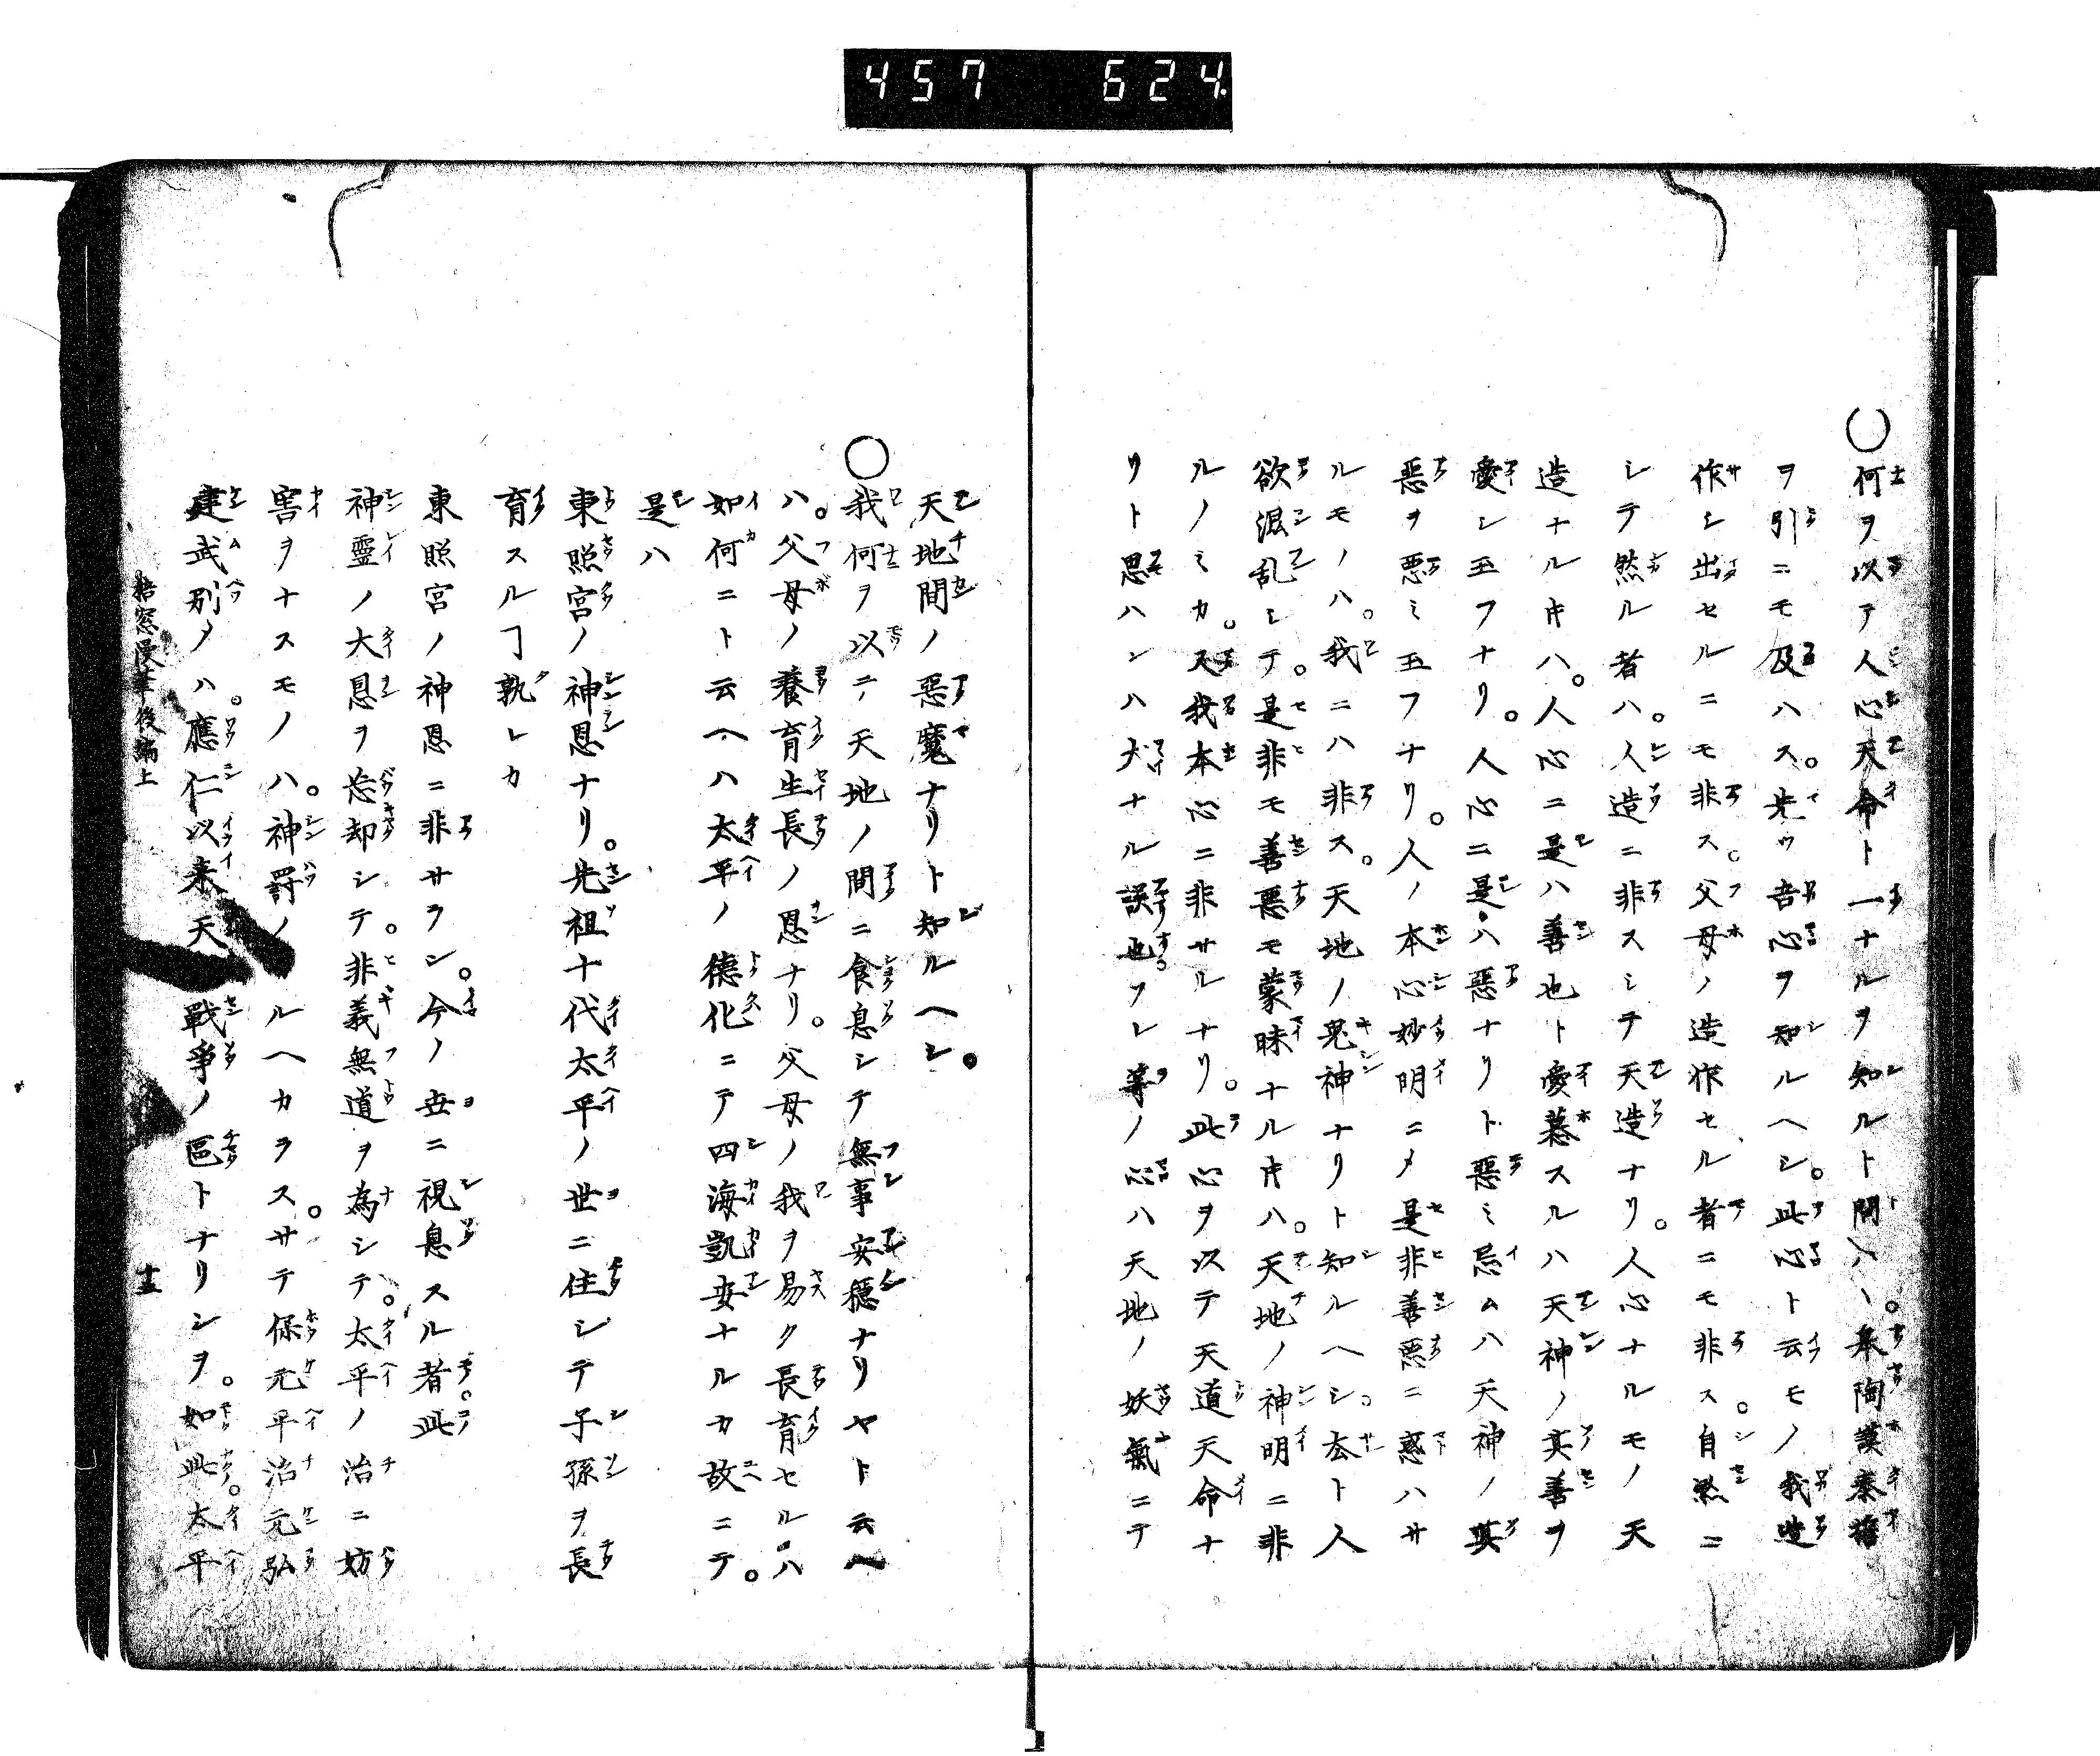 457 624.
○何ヲ以テ人心天命ト一ナルヲ知ルト問ハヽ。皐陶謨泰誓
ヲ引ニモ及ハス。先ツ吾心ヲ知ルヘシ。此心ト云モノ我造
作シ出セルニモ非ス。父母ノ造作セル者ニモ非ス。自然ニ
シテ然ル者ハ。人造ニ非スシテ天造ナリ。人心ナルモノ天
造ナルキハ。人心ニ是ハ善也ト愛慕スルハ天神ノ其善ヲ
愛シ玉フナリ。人心ニ是ハ惡ナリト惡ミ忌ムハ天神ノ其
惡ヲ悪ミ玉フナリ。人ノ本心妙明ニメ是非善悪ニ惑ハサ
ルモノハ。我ニハ非ス。天地ノ鬼神ナリト知ルヘシ。厺ト人
欲混乱シテ。是非モ善悪モ蒙昧ナルキハ。天地ノ神明ニ非
ルノミカ。又我本心ニ非サルナリ。此心ヲ以テ天道天命ナ
リト思ハンハ大ナル誤也。フレ等ノ心ハ天地ノ妖氣ニテ
天地間ノ惡魔ナリト知ルヘシ。
○我何ヲ以ニテ天地ノ間ニ食息シテ無事安穩ナリヤト云ヘ
ハ。父母ノ養育生長ノ恩ナリ。父母ノ我ヲ易ク長育セルハ
如何ニト云ヘハ太平ノ德化ニテ四海凱安ナルカ故ニテ。
是ハ
東照宮ノ神恩ナリ。先祖十代太平ノ世ニ住シテ子孫ヲ長
育スルヿ孰レカ
東照宮ノ神恩ニ非サラン。今ノ世ニ視息スル者。此
神靈ノ大恩ヲ忘却シテ。非義無道ヲ為シテ。太平ノ治ニ妨
害ヲナスモノハ。神罸ノ ルヘカラス。サテ保元平治元弘
建武別メハ。應仁以来天 戰爭ノ區トナリシヲ。如此。太平
梧窓漫筆後編上 十五